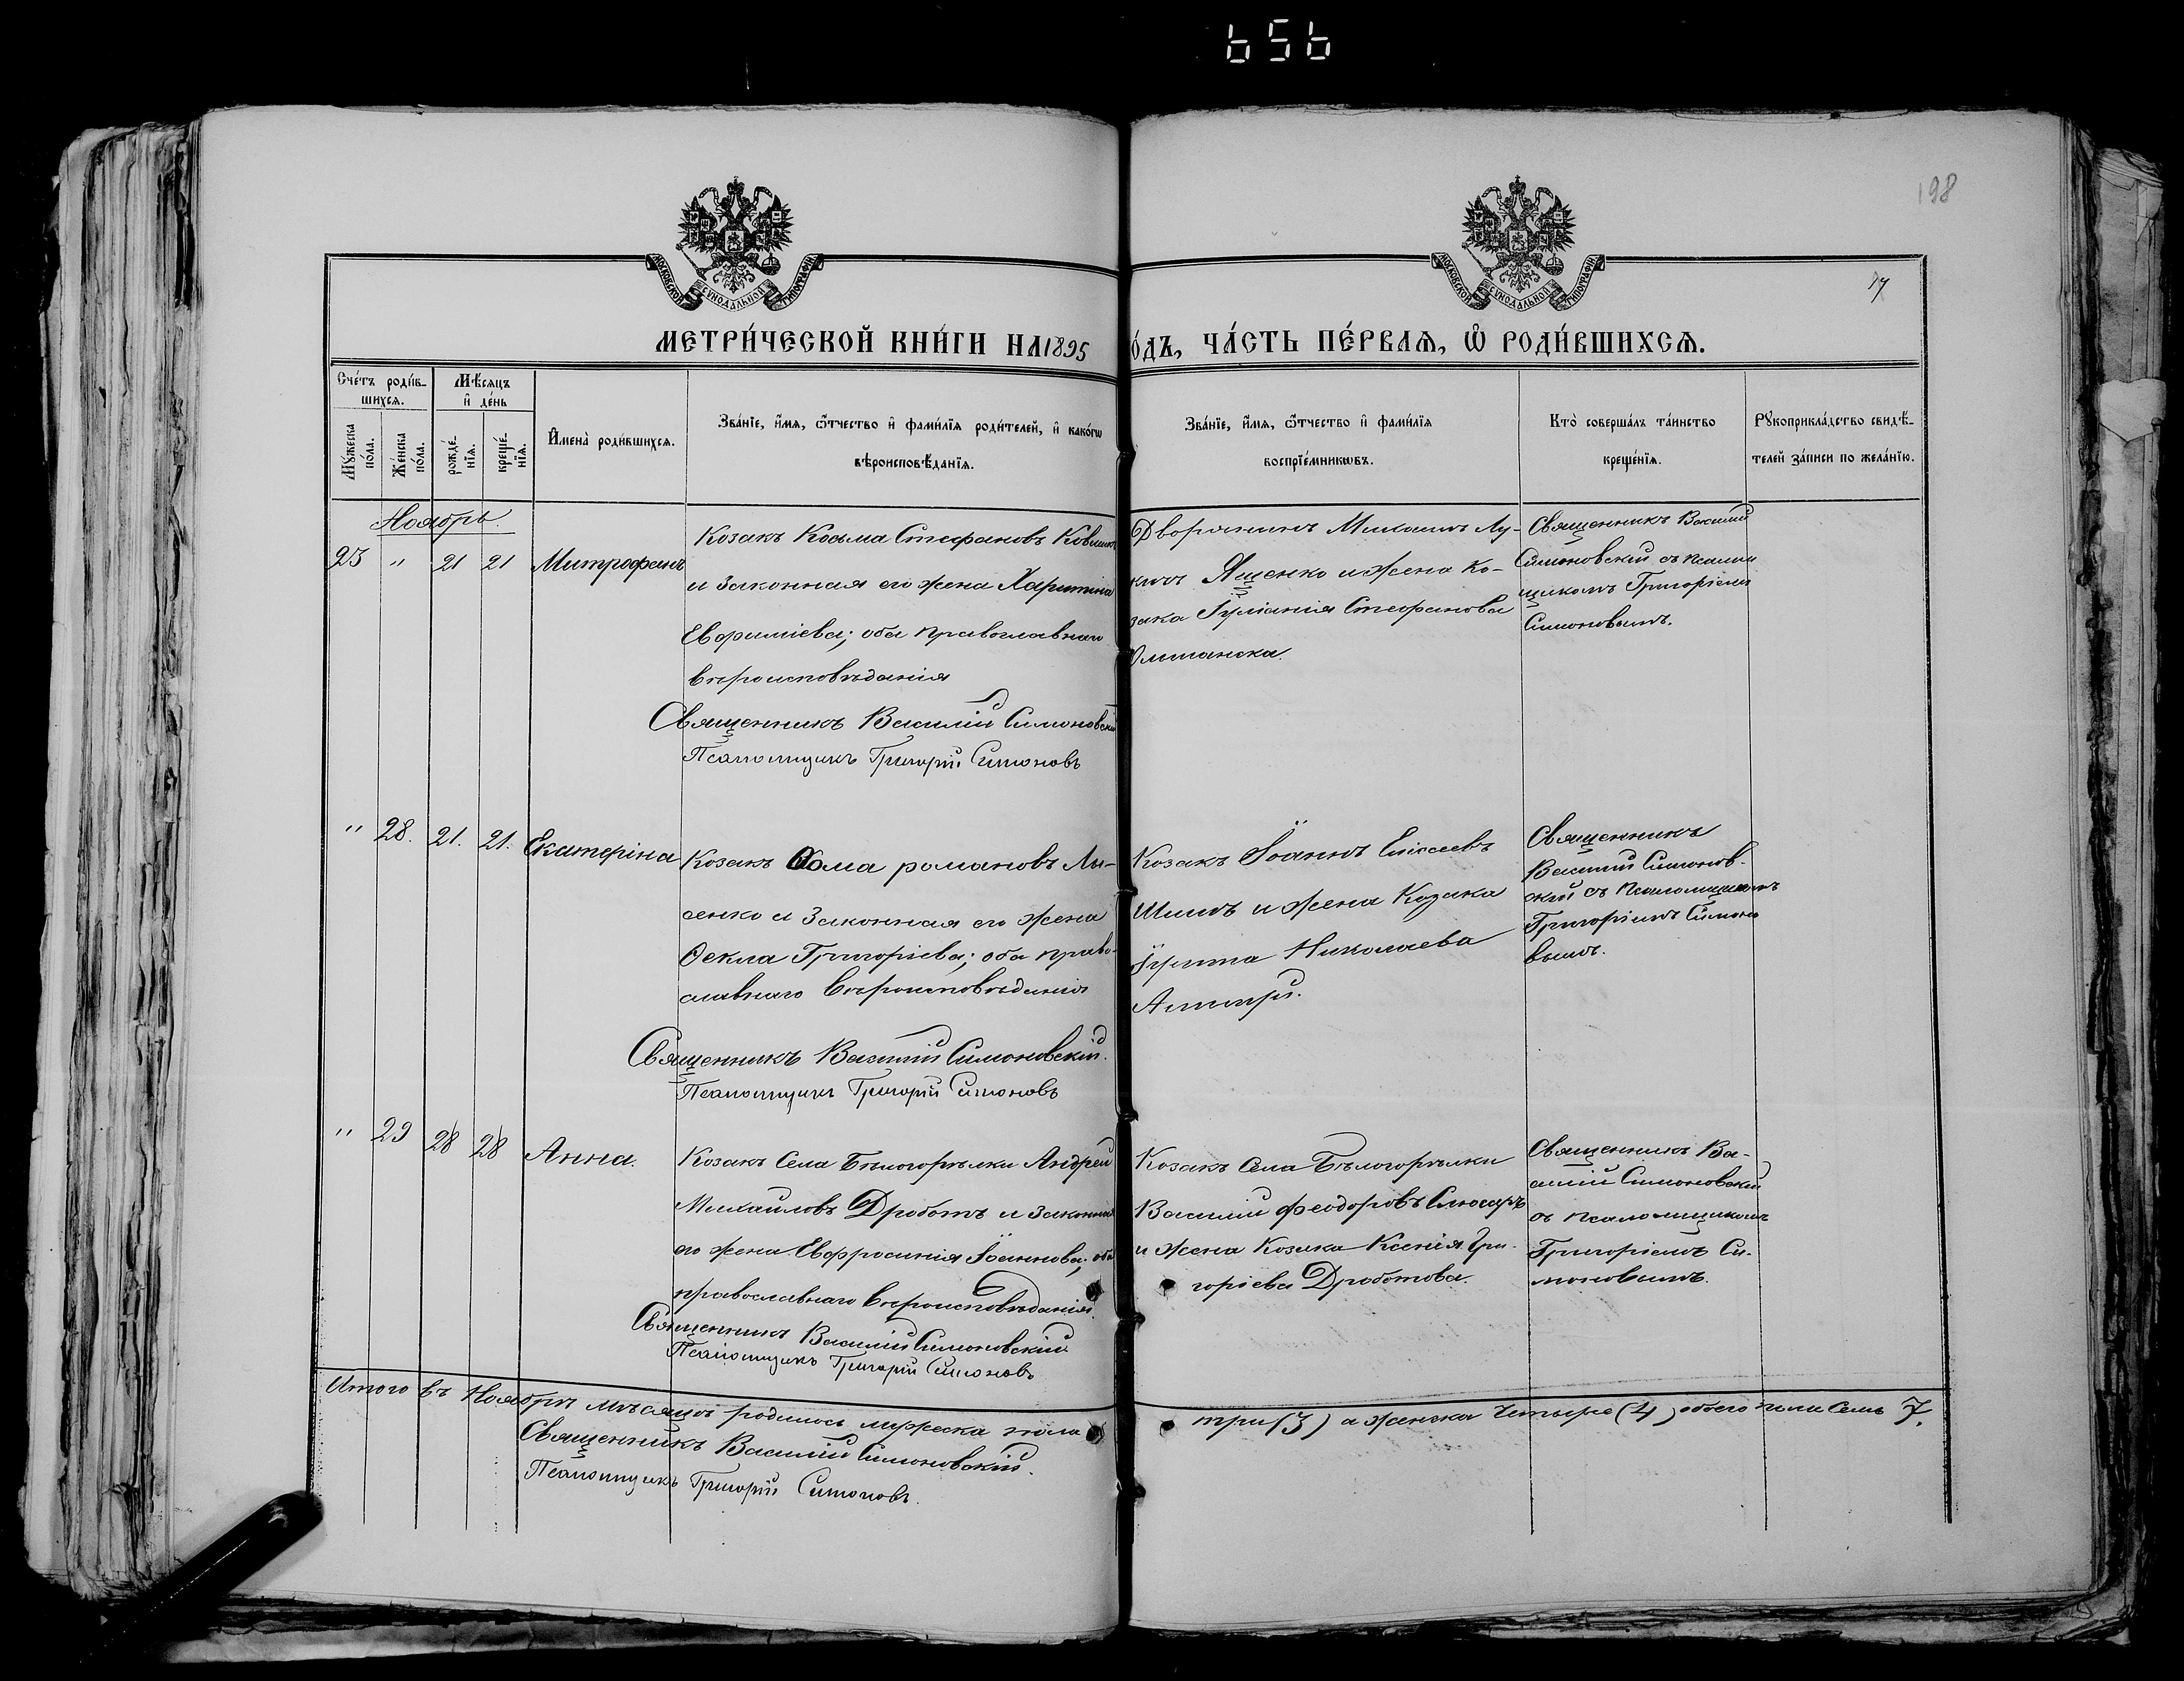 656
198
17
МОСКОВСКОЙ СѴНОДАЛЬНОЙ ТИПОГРАФІИ
МОСКОВСКОЙ СѴНОДАЛЬНОЙ ТИПОГРАФІИ
МЕТРИ́ЧЕСКОЙ КНИ́ГИ НА 1895
О́ДЪ, ЧА́СТЬ ПЕ́РВАѦ, Ѡ РОДИ́ВШИХСѦ.
Сче́тъ роди́в-
шихсѧ.
Мꙋ́жеска по́ла.
Же́нска по́ла.
Мѣ́сѧцъ
и де́нь
рожде́-
нїѧ.
креще́-
нїѧ.
Имена̀ роди́вшихсѧ.
Зва́нїе, и́мѧ, ѻ́тчество и фами́лїѧ роди́телей, и како́гѡ
вѣроисповѣ́данїѧ.
Зва́нїе, и́мѧ, ѻ́тчество и фами́лїѧ
воспрїе́мникѡвъ.
Кто̀ соверша́лъ та́инство
креще́нїѧ.
Рꙋкоприкла́дство свидѣ́-
телей за́писи по жела́нїю.
Ноябрь.
23 " 21 21 Митрофанъ
Козакъ Косьма Стефановъ
и законная его жена Харитина
Евфиміева; оба православнаго
вѣроисповѣданія
Священникъ Василій Симоновскій
Псаломщикъ Григорій Симоновъ
Дворянинъ Михаилъ Лу-
кичъ Ященко и жена ко-
зака Іуліанія Стефанова
Священникъ Василій
Симоновскій съ псалом
щикомъ Григоріемъ
Симоновымъ.
" 28. 21. 21. Екатеріна
Козакъ Ѳома романовъ Лы-
сенко и законная его жена
Ѳекла Григоріева; оба право-
славнаго вѣроисповѣданія
Священникъ Василій Симоновскій.
Псаломщикъ Григорій Симоновъ
Козакъ Іоаннъ Елисеевъ
и жена Козака
Николаева
Священникъ
Василій Симонов-
скій съ псаломщикомъ
Григоріемъ Симоно
вымъ.
" 29 28 28 Анна.
Козакъ Села Бѣлогорѣлки Андрей
Михаиловъ Дроботъ и законная
его жена Евфросинія Іоаннова; оба
православнаго вѣроисповѣданія.
Священникъ Василій Симоновскій
Псаломщикъ Григорій Симоновъ
Козакъ Села Бѣлогорѣлки
Василій Феодоровъ Слюсарь
и жена Козака Ксенія Гри-
горіева Дроботова.
Священникъ Ва-
силій Симоновскій
съ псаломщикомъ
Григоріемъ Си-
моновымъ.
Итого въ Ноябрѣ мѣсяцѣ родилось мужеска пола
три (3) а женска четыре (4) обоего пола Семь 7.
Священникъ Василій Симоновскій.
Псаломщикъ Григорій Симоновъ.